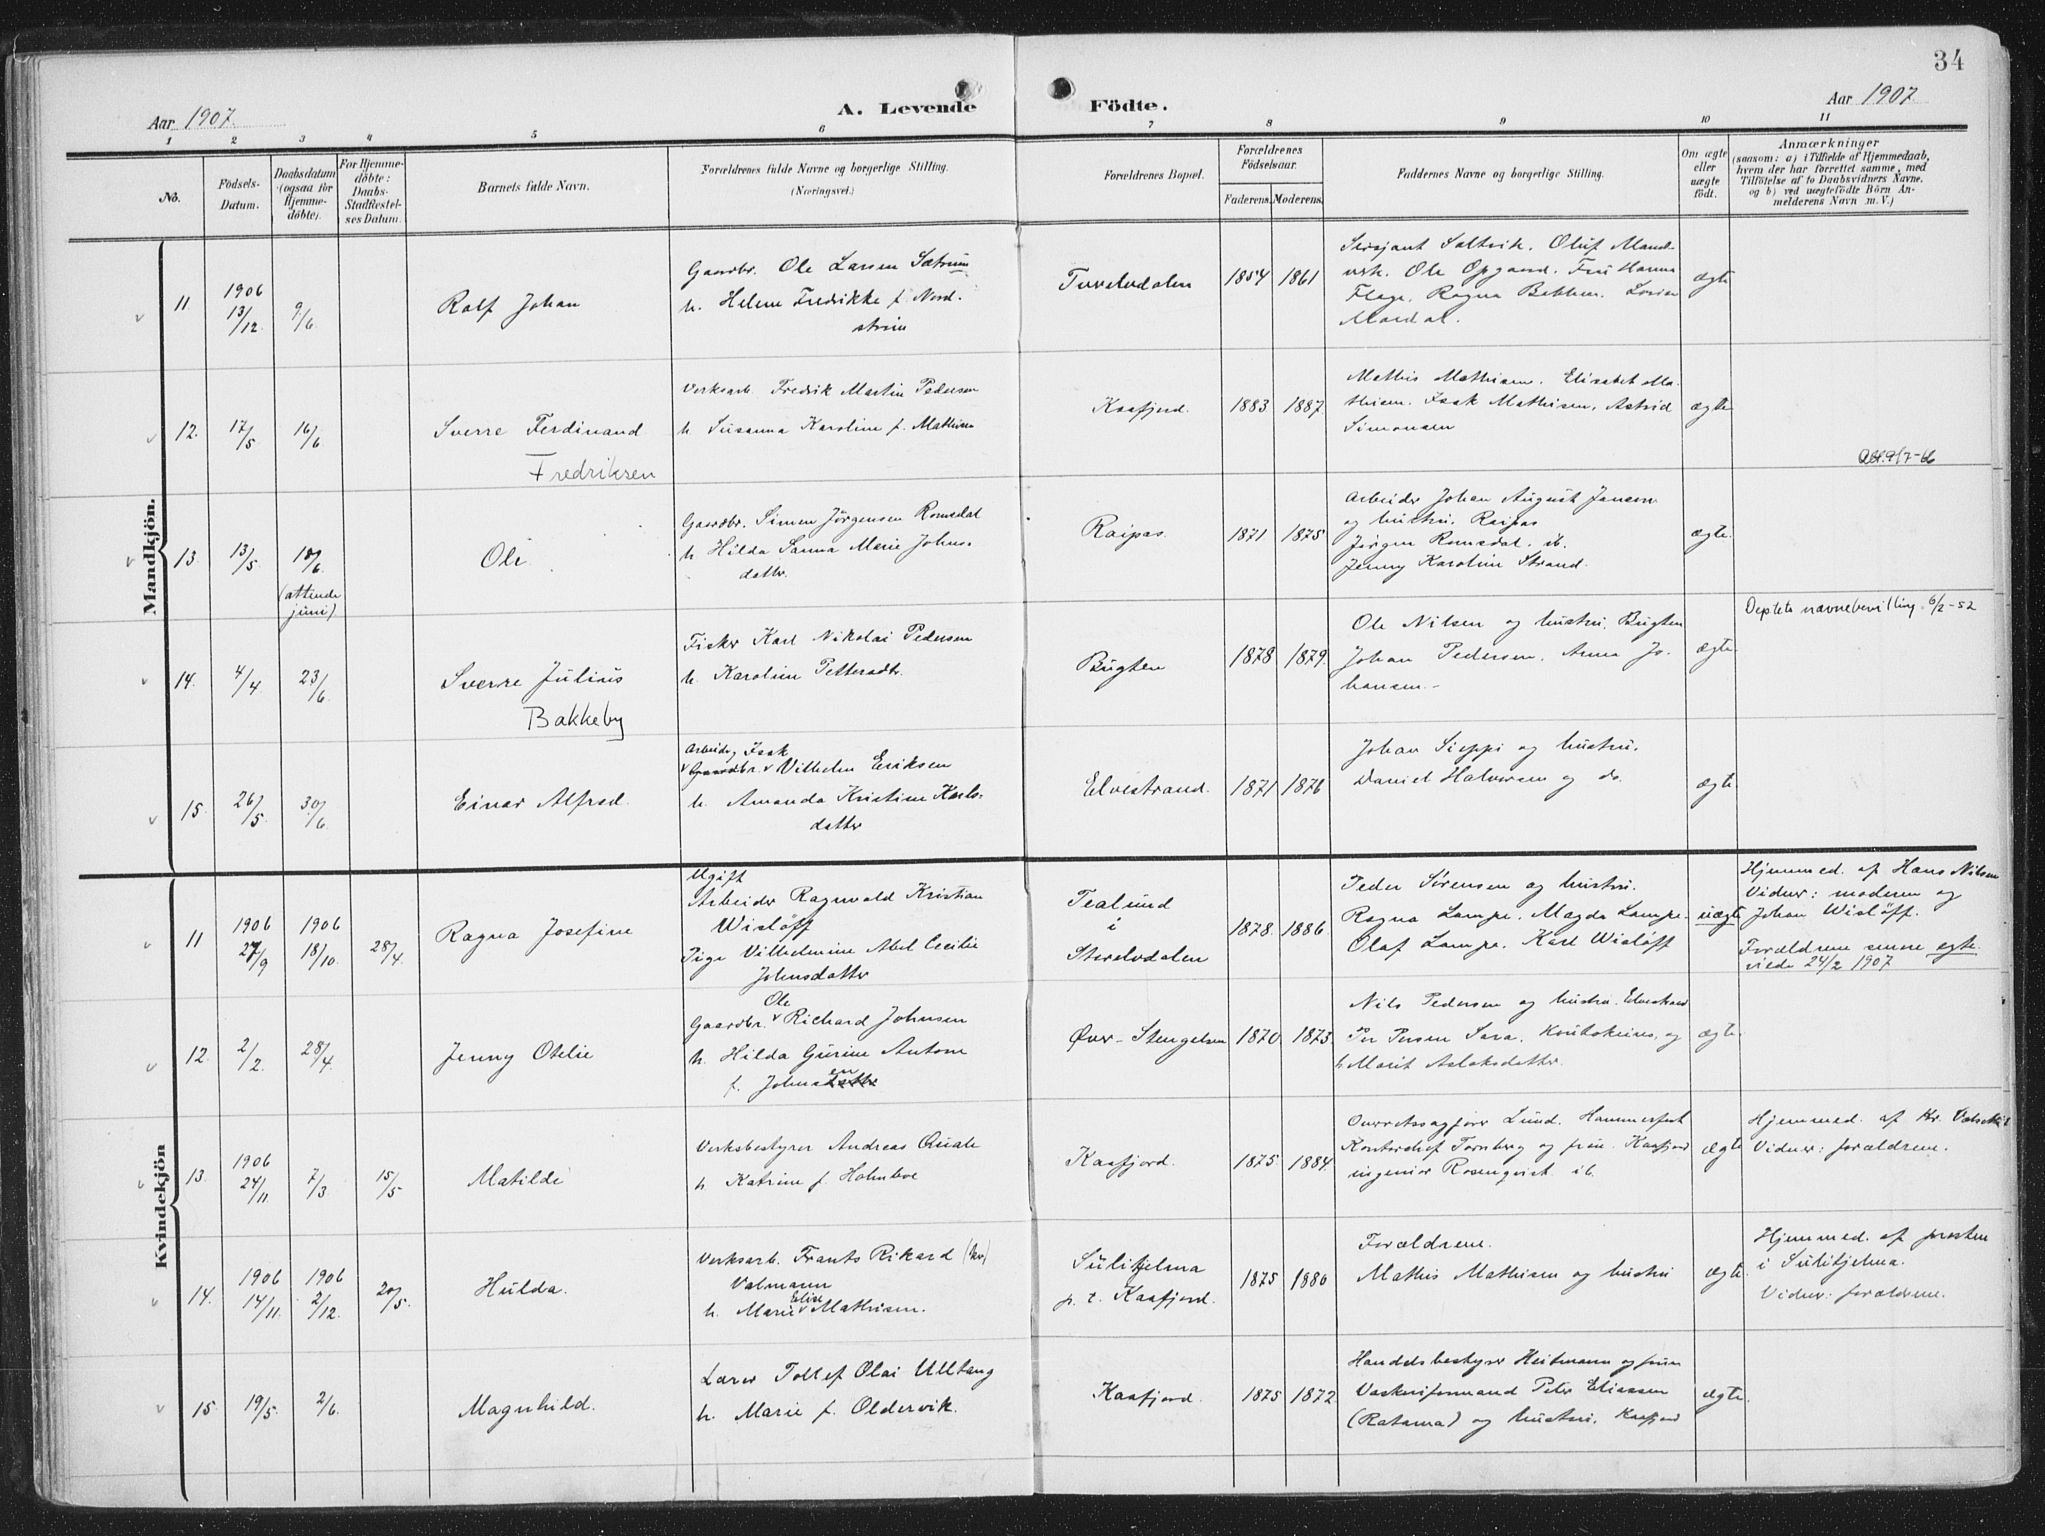 34
Aar 1907.
A. Levende Födte.
Aar 1907
1 2 3 4 5 6 7 8 9 10 11
No.
Födsels-Datum.
Daabsdatum (ogsaa for Hjemme-döbte).
For Hjemme-döbte: Daabs-Stadfæstel-ses Datum.
Barnets fulde Navn.
Forældrenes fulde Navne og borgerlige Stilling. (Næringsvei.)
Forældrenes Bopæl.
Forældrenes Födselsaar.
Faderens. Moderens.
Faddernes Navne og borgerlige Stilling.
Om ægte eller uægte födt.
Anmærkninger
(saasom: a) i Tilfælde af Hjemmedaab,
hvem der har forrettet samme, med
Tilföielse af to Daabsvidners Navne.
og b) ved uægtefödte Börn An-
melderens Navn m. V.)
Mandkjön.
11 1906 13/12. 9/6 Rolf Johan
Gaardbr. Ole Larsen Sætrum
h. Helene Fredrikke f. Nord-
ström
1854 1861
Sersjant Saltvik. Oluf Mand-
verk. Ole Opgaard. Fru Hanna
Flage. Ragna Bekken.
ægte
12. 17/5 16/6 Sverre Ferdinand
Fredriksen
Verksarb. Fredrik Martin Pedersen
h. Susanna Karoline f. Mathisen
Kaafjord. 1883 1887
Mathis Mathisen. Elisabet Ma-
thisen. Isak Mathisen, Astrid
Simonsen
ægte
Att. 9/7-66
13. 13/5 18/6. (attende juni) Ole
Gaardbr. Simon Jørgensen Romsdal
h. Hilda Sanna Marie Johns-
datter.
Raipas. 1871 1875
Arbeider Johan August Jensen
og hustru. Raipas
Jørgen Romsdal. ib.
Jenny Karoline Strand.
ægte.
14. 4/4 23/6 Sverre Julius
Bakkeby
Fisker Karl Nikolai Pedersen
h. Karoline Pettersdtr.
Bugten 1878 1879.
Ole Nilsen og hustru. Bugten
Johan Pedersen. Anna Jo-
hansen.-
ægte
navnebevilling 6/2-52
15. 26/5. 30/6 Einar Alfred.
Arbeider Isak
Gaardbr. Vilhelm Eriksen
h. Amanda Kristine Karls-
datter
Elvestrand. 1871 1876
Johan Sieppi og hustru.
Daniel Halvorsen og do.
ægte.
Kvindekjön
11 1906 27/9 1906 18/10. 28/4. Ragna Josefine
Ugift
Arbeider Ragnvald Kristian
Wisløff
Pige Vilhelmine Abel Cecilie
Johnsdatter
i
1878. 1886.
Peder Sørensen og hustru.
Ragna Lampe. Magda Lampe.
Olaf Lampe. Karl Wisløff
uægte
Hjemmed. af Hans Nilsen
Vidner: moderen og
Johan Wisløff.
Forældrene senere egte-
viede 24/2 1907
12. 2/2. 28/4 Jenny Otelie
Ole
Gaardbr. Richard Johnsen
h. Hilda Gurine Antone
f. Johnsdatter
en
Øvr-Stengelsen 1870. 1873.
Nils Pedersen og hustru. Elvestrand
Per Persen Sara. Koutokeino, og
h Marit Aslaksdatter.
ægte.
13. 1906 24/11. 7/3 15/5. Matilde
Verksbestyrer Andreas Quale
h. Katrine f. Holmboe
Kaafjord. 1875. 1884.
Overretssagfører Lund. Hammerfest
Kontorchef Tornberg og frue. Kaafjord
ingeniør Rosenqvist ib.
ægte
Hjemmed. af
Vidner: forældrene.
14. 1906 14/11. 1906 2/12. 20/5. Hulda.
Verksarb. Frants Rikard
Valmann
Elise
h. Marie Mathisen.
Sulitjelma
p. t. Kaafjord.
1875 1886
Forældrene.
Mathis Mathisen og hustru
ægte
Hjemmed. af presten
i Sulitjelma.
Vidner: forældrene.
15. 19/5. 2/6. Magnhild.
Lærer Tollef Olai Ulltang
h. Marie f. Oldervik.
Kaafjord. 1875 1872.
Handelsbestyrer Heitmann og frue
Vaskeriformand Peter Eliassen
(Ratama) og hustru. Kaafjord
ægte.